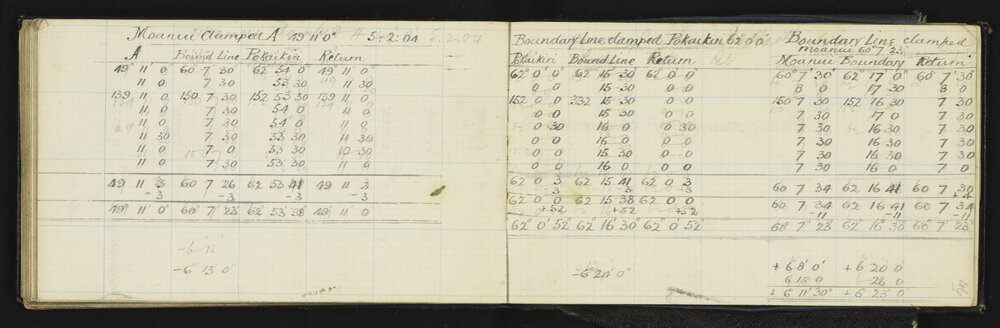 Moanui Clamped A 49° 11' 0" 5.2.04
A Bound Line Pokaikiri Return
49° 11 0 60° 7 30 62° 54 0 49 11 0
11 0 7 30 53 30 11 30
139 11 0 150 7 30 152 53 30 139 11 0
11 0 7 30 54 0 11 0
11 0 7 30 54 0 11 0
11 30 7 30 53 30 11 30
11 0 7 0 53 30 10 30
11 0 7 30 53 30 11 0
49 11 3 60 7 26 62 53 41 49 11 3
-3 -3 -3 -3
49° 11' 0" 60° 7' 23" 62° 53' 38 49° 11' 0"
-6° 13' 0"
Boundary Line clamped Pokaikiri 62° 0' 0"
Pokaikiri Bound Line Return
62° 0' 0" 62° 15 30 62° 0 0
0 0 15 30 0 0
152 0 0 332 15 30 0 0
0 0 15 30 0 0
0 30 16 0 0 30
0 0 16 0 0 0
0 0 15 30 0 0
0 0 16 0 0 0
62 0 3 62 15 41 62 0 3
-3 -3 -3
62 0 0 62 15 38 62 0 0
+52 +52 +52
62° 0' 52" 62° 16' 30" 62° 0' 52
-6° 20' 0"
Boundary Line clamped
Moanui 60° 7' 23"
Moanui Boundary Return
60° 7' 30" 62° 17' 0" 60° 7' 30
8 0 17 30 8 0
150 7 30 152 16 30 7 30
7 30 17 0 7 30
7 30 16 30 7 30
7 30 16 30 7 30
7 30 16 30 7 30
7 30 16 0 7 0
60 7 34 62 16 41 60 7 30
+4
60 7 34 62 16 41 60 7 34
-11 -11 -11
60° 7' 23 62° 16' 30 60° 7' 23"
+ 6° 8' 0" + 6° 20 0
6 15 0 26 0
+ 6 11' 30" + 6° 23' 0"